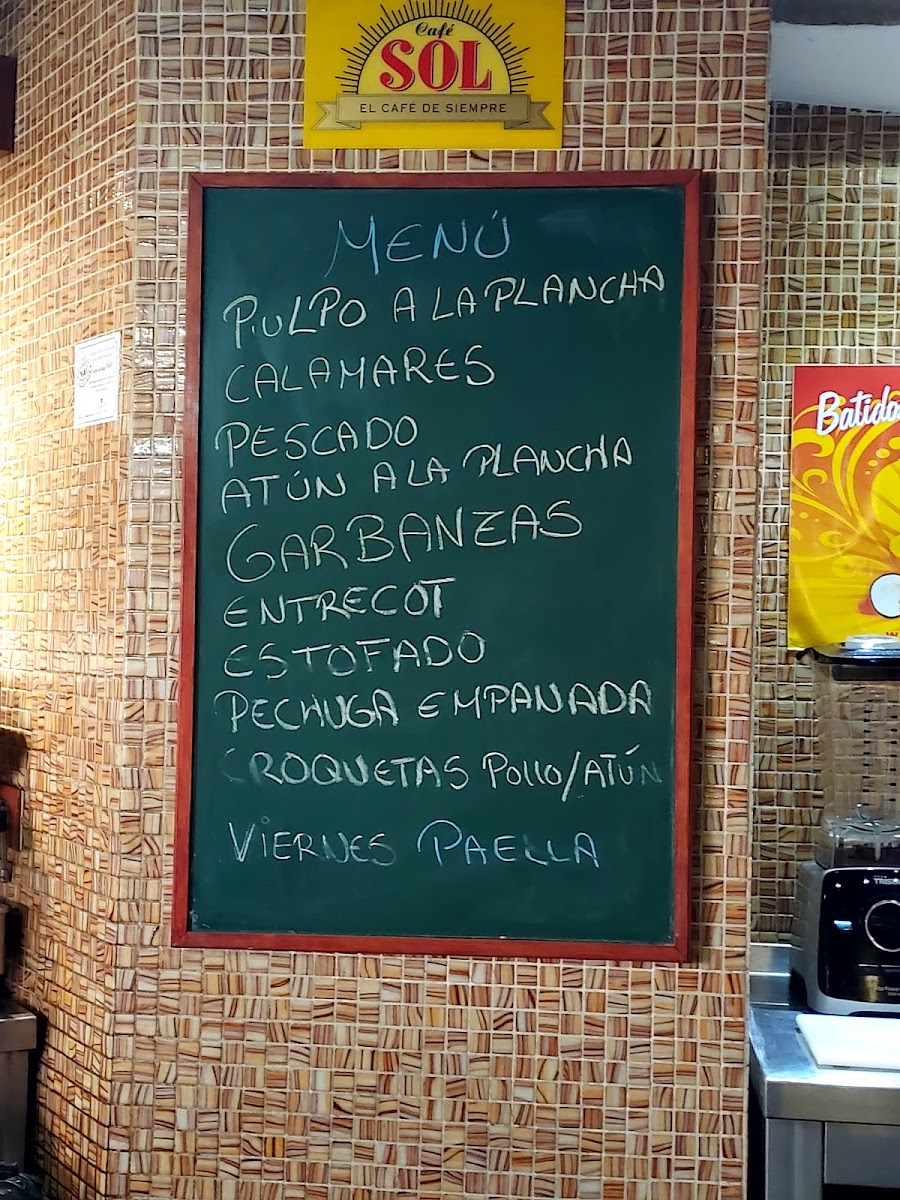 Café
SOL
EL CAFÉ DE SIEMPRE
MENÚ
PULPO A LA PLANCHA
CALAMARES
PESCADO
ATÚN A LA PLANCHA
GARBANZAS
ENTRECOT
ESTOFADO
PECHUGA EMPANADA
CROQUETAS POLLO/ATÚN
VIERNES PAELLA
Batido